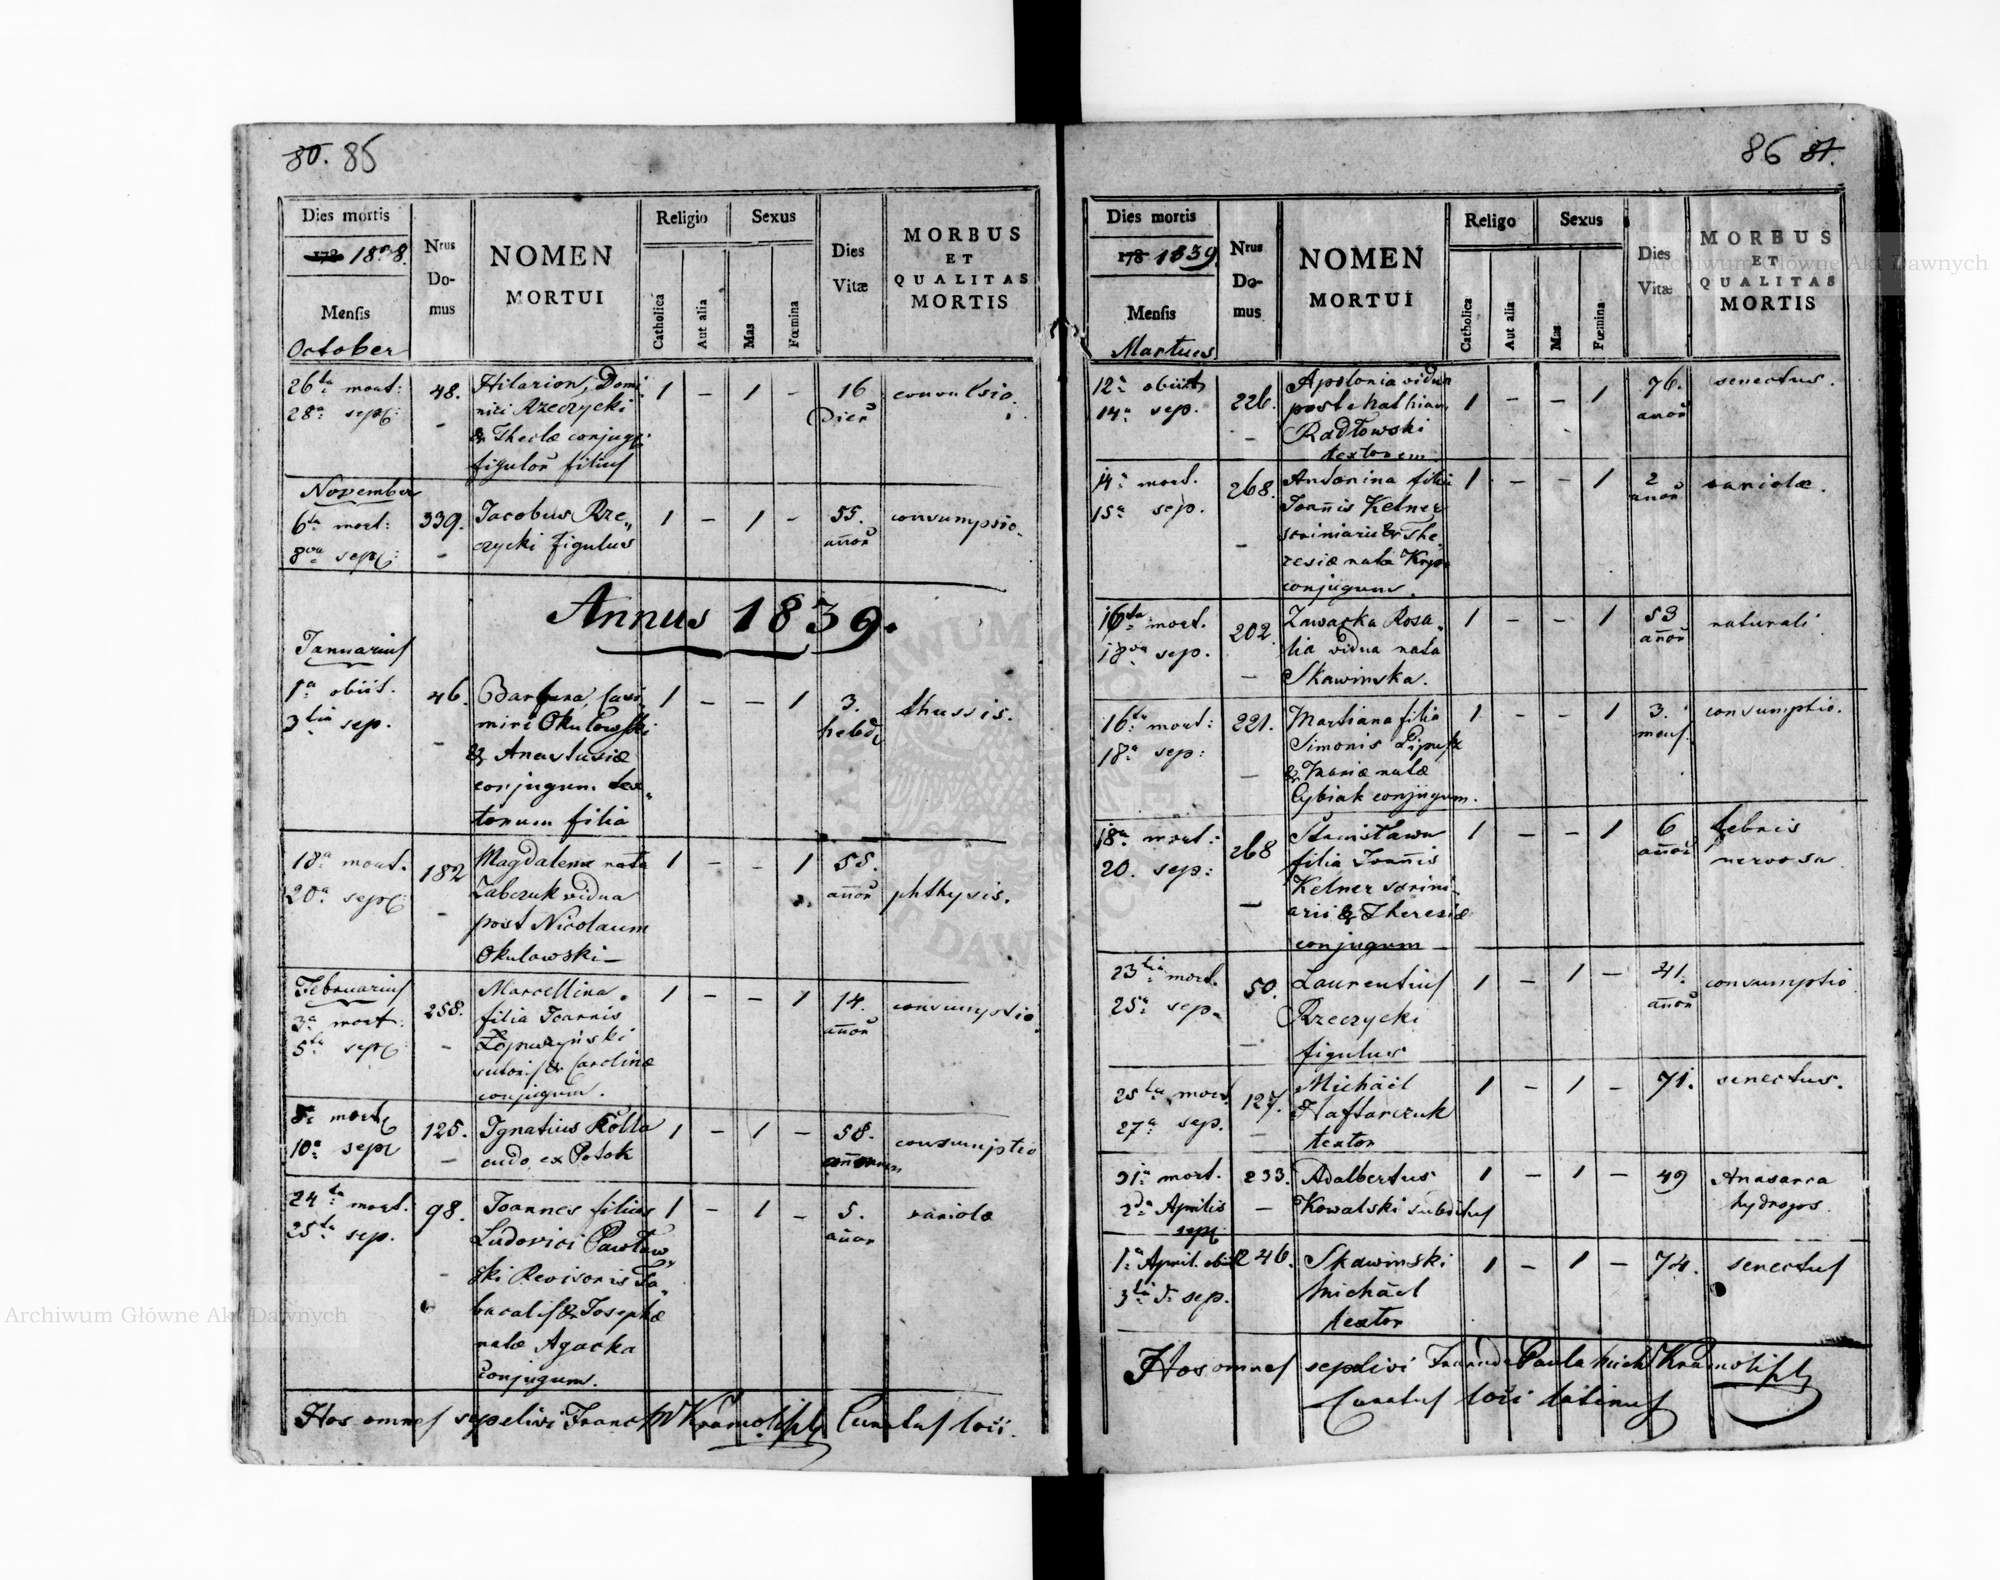 80. 85
Dies mortis
178 1838.
Mensis
October
Nrus
Do-
mus
NOMEN
MORTUI
Religio
Catholica
Aut alia
Sexus
Mas
Fœmina
Dies
Vitæ
MORBUS
ET
QUALITAS
MORTIS
26ta mort: 48. Hilarion, Domi 1 – 1 – 16 convulsio.
28a sep: nici Rzeczycki Dier
& Theclæ conjug:
figulor filius
November
6ta mort: 339. Jacobus Rze„ 1 – 1 – 55. consumpsio.
8va sep: czycki figulus annor
Annus 1839.
Januarius
1a obiit. 46. Barbara, Casi 1 – – 1 3. thussis.
3tia sep. miri Okulowski hebd
& Anastasiæ
conjugum tex„
torum filia
18a mort. 182 Magdalena nata 1 – – 1 55.
20a sep: Zabczuk vidua annor phthysis.
post Nicolaum
Okulowski –
Februarius
3a mort: 258. Marcellina 1 – – 1 14. consumptio.
5ta sep: filia Joannis annor
Łopuszyński
sutoris & Carolinæ
conjugum.
8a mort 125. Ignatius Kolla 1 – 1 – 58. consumptio
10a sep: cudo, ex Potok annorum
24ta mort. 98. Joannes filius 1 – 1 – 5. variolæ
25ta sep. Ludovici Pawłow„ annor
ski Revisoris Ta„
bacalis & Josephæ
natæ Agacka
Conjugum.
Hos omnes sepelivi Franc W Kramolisch Curatus loci.
86 87.
Dies mortis
178 1839
Mensis
Martius
Nrus
Do-
mus
NOMEN
MORTUI
Religo
Catholica
Aut alia
Sexus
Mas
Fœmina
Dies
Vitæ
MORBUS
ET
QUALITAS
MORTIS
12a obiit 226. Apolonia vidua 1 – – 1 76. senectus.
14a sep. post Mathiam annor
Radłowski
textorem.
14a mort. 268. Antonina filia 1 – – 1 2 variolæ.
15a sep. Joannis Kelner annor
scriniarii & The„
resiæ nata
conjugum.
16ta mort. 202. Zawacka Rosa„ 1 – – 1 53 naturali
18va sep. lia vidua nata annor
Skawinska.
16ta mort: 221. Martiana filia 1 – – 1 3. consumptio.
18a sep: Simonis mens.
& Mariæ natæ
Cybiak conjugum.
18a mort: 268 Stanisława 1 – – 1 6 febris
20. sep: filia Joannis annor nervosa
Kelner scrini„
arii & Theresiæ
conjugum
23tia mort. 50. Laurentius 1 – 1 – 41. consumptio
25a sep. Rzeczycki annor
figulus
25ta mort. 127. Michael 1 – 1 – 71. senectus.
27a sep. Haftarczuk
textor
31a mort. 233. Adalbertus 1 – 1 – 49 Anasarca
2da Aprilis Kowalski subditus hydrops.
sep:
1a April. obiit 246. Skawinski 1 – 1 – 74. senectus
3tia d. sep. Michael
textor
Hos omnes sepelivi Franc de Paula Kramolisch
Curatus loci latinus
Archiwum Główne Akt Dawnych
Archiwum Główne Akt Dawnych